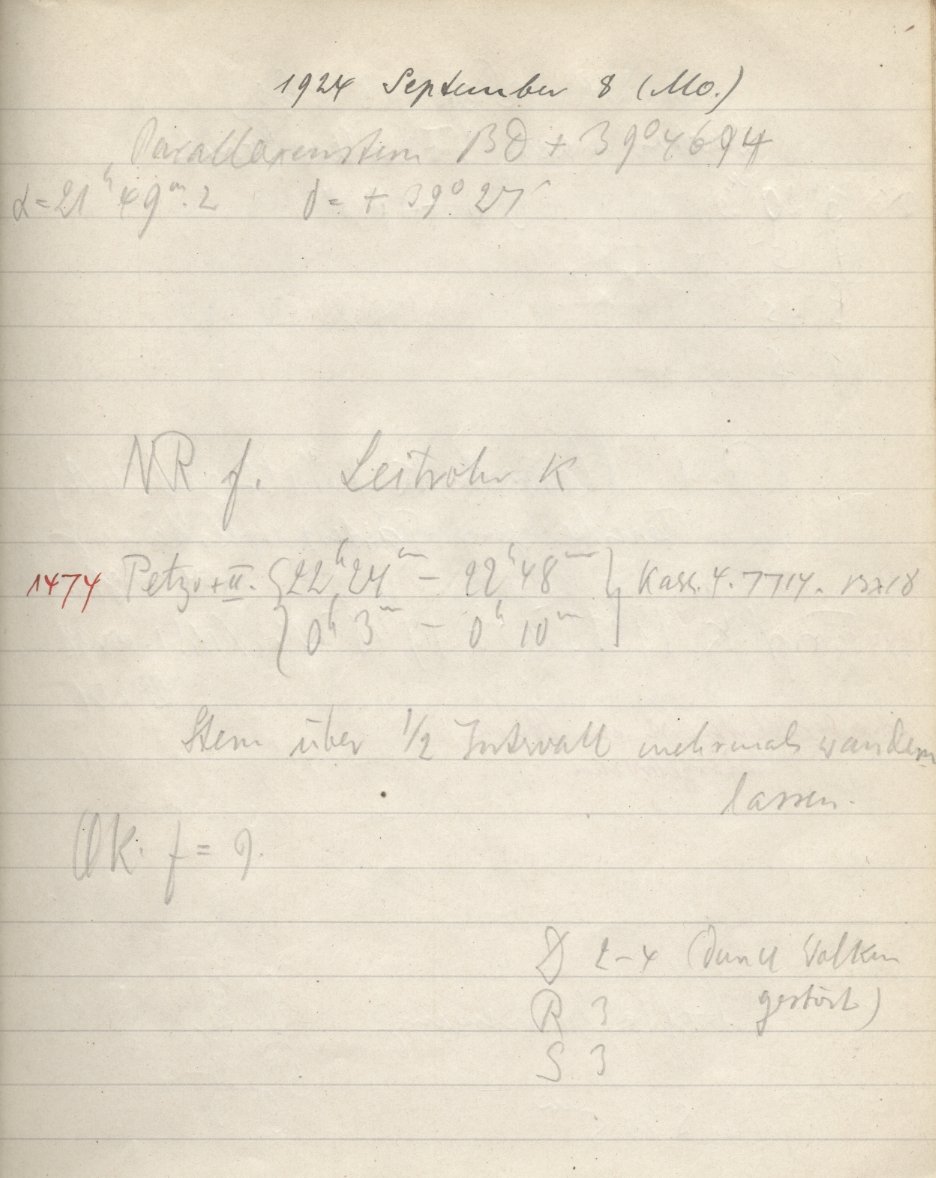 1924 September 8 (Mo.)
Parallaxenstern BD + 39° 4694
α = 21ʰ 49ᵐ.2 δ = + 39° 27′
NR f. Leitrohr K
1474 Petz. + II. {22ʰ 24ᵐ – 22ʰ 48ᵐ} Kass. 4. 7714. 13x18
0ʰ 3ᵐ – 0ʰ 10ᵐ
Stern über 1/2 Intervall mehrmals wandern
lassen.
OK. f = 9.
D 2-4 (durch Wolken
R 3 gestört)
S 3